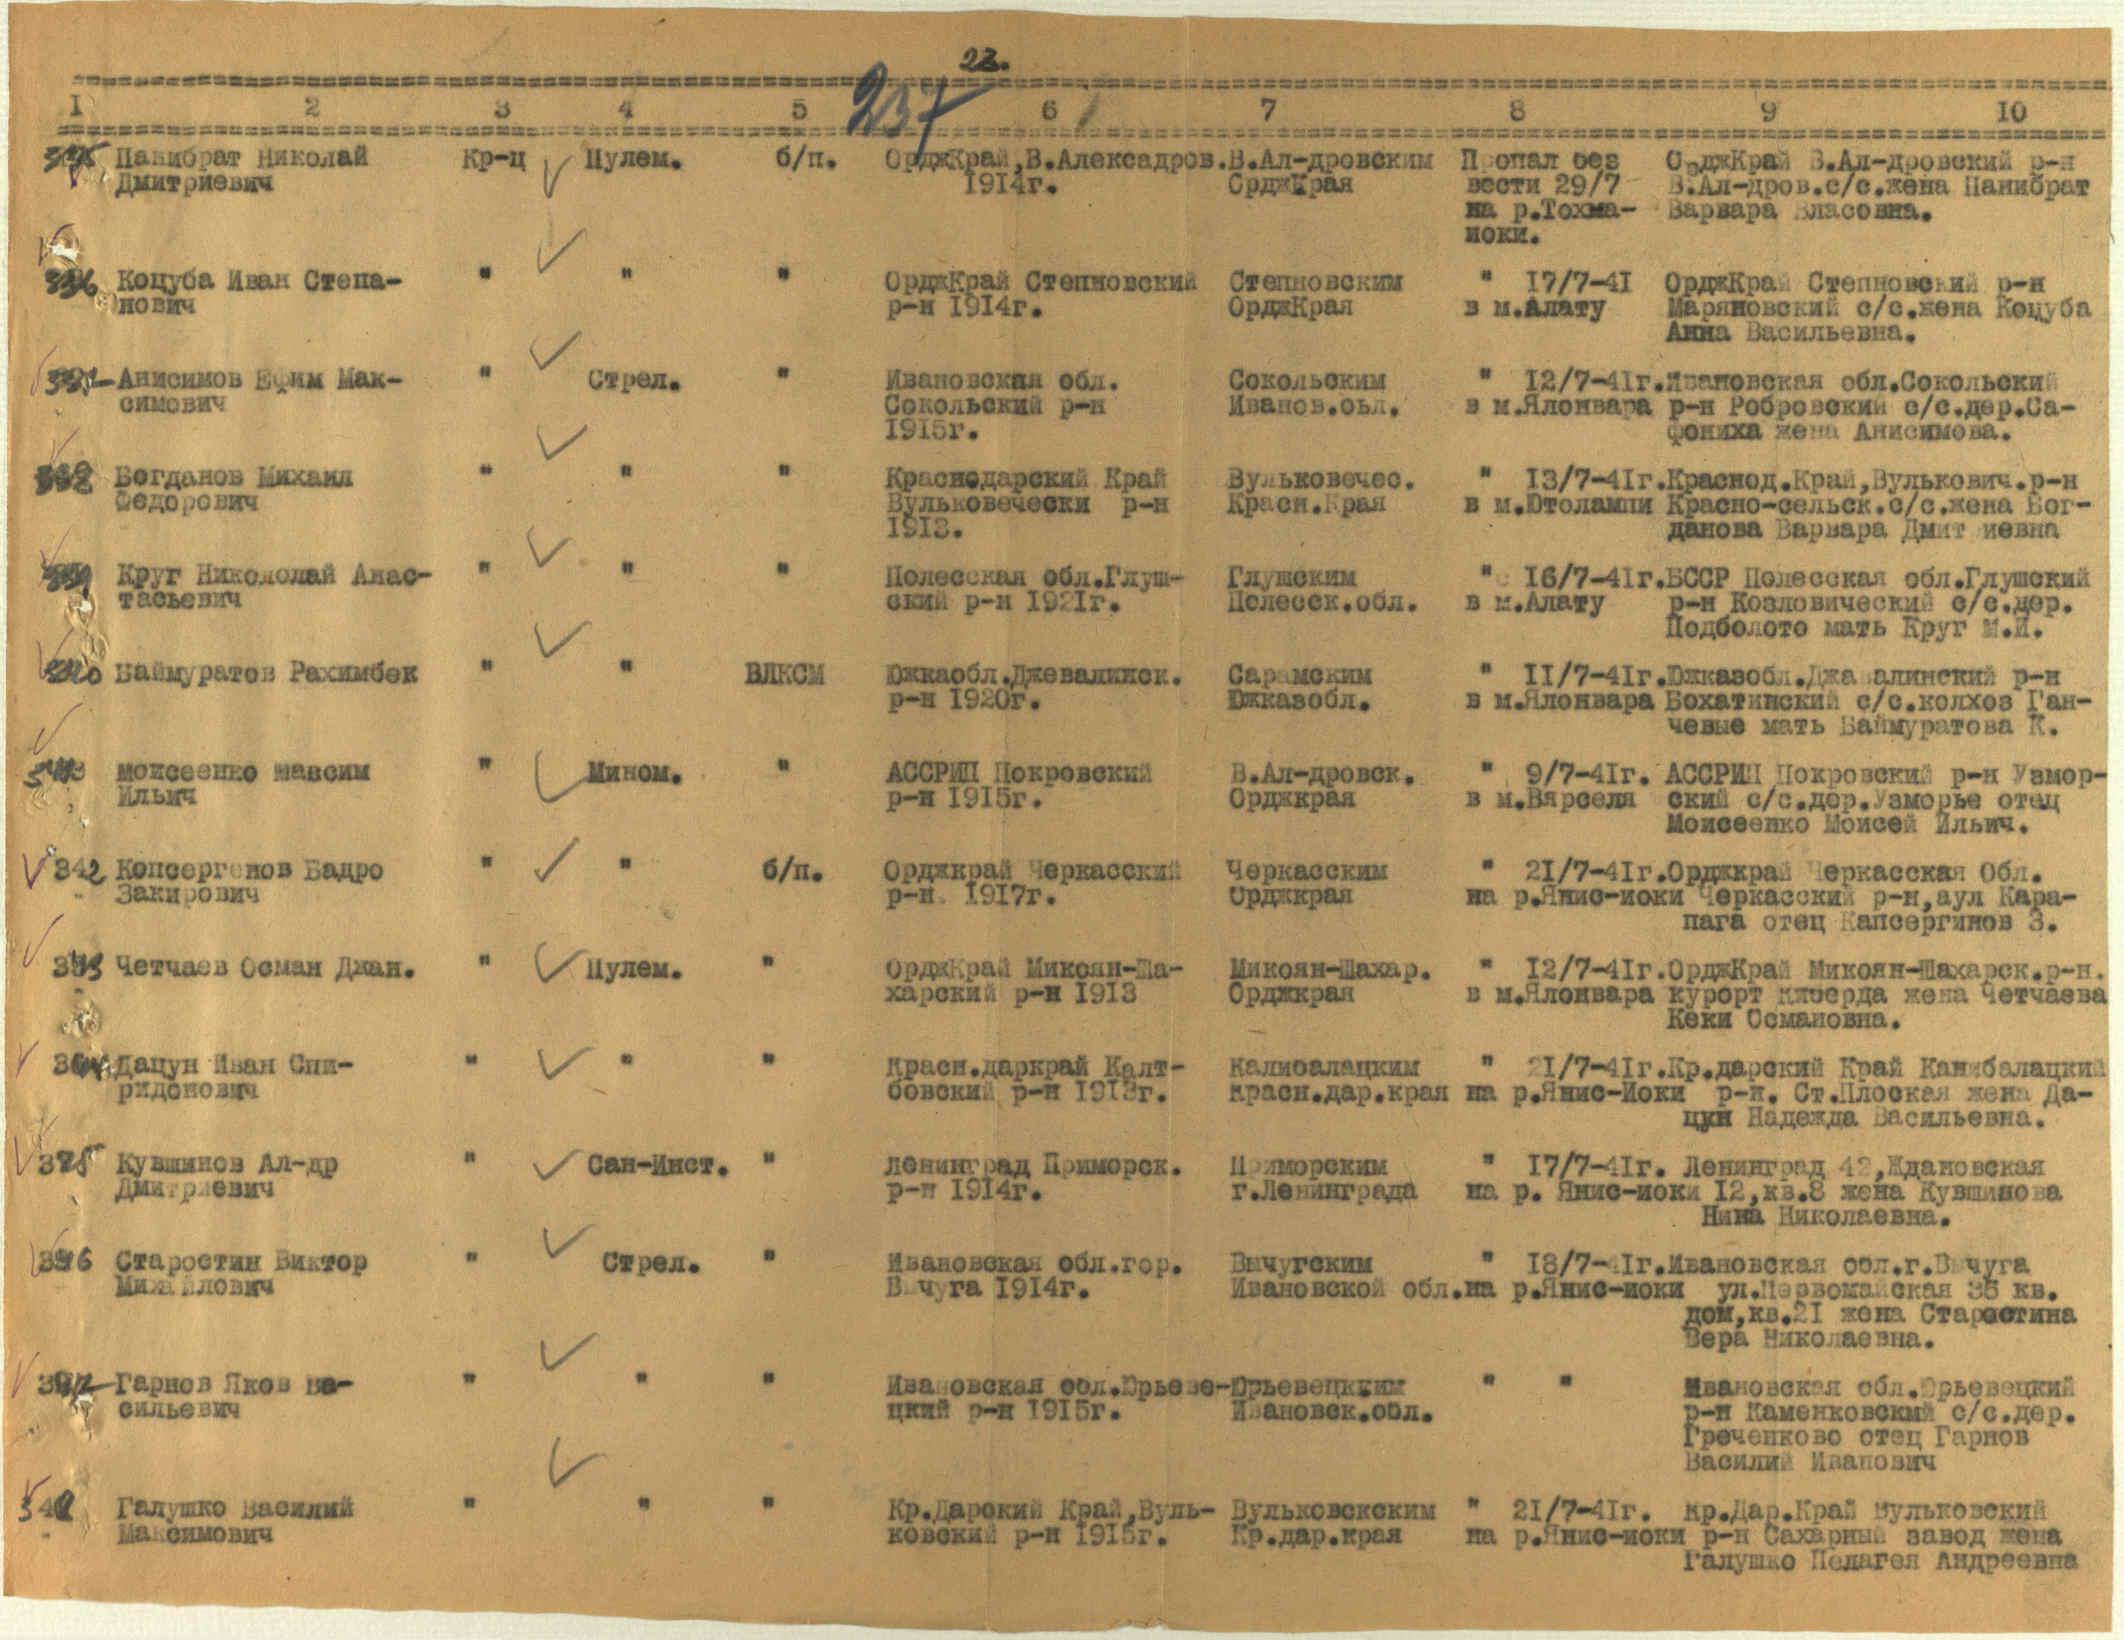 22.
237
1 2 3 4 5 6 7 8 9 10
335 Панибрат Николай Кр-ц Пулем. б/п. ОрджКрай,В.Алексадров. В.Ал-дровским Пропал без ОрджКрай В.Ал-дровский р-н
Дмитриевич 1914г. ОрджКрая вести 29/7 В.Ал-дров.с/с.жена Панибрат
на р.Тохма- Варвара Власовна.
иоки.
336 Коцуба Иван Степа- " " " ОрджКрай Степновский Степновским " 17/7-41 ОрджКрай Степновский р-н
нович р-н 1914г. ОрджКрая в м.Алату Маряновский с/с.жена Коцуба
Анна Васильевна.
Анисимов Ефим Мак- " Стрел. " Ивановская обл. Сокольским " 12/7-41г. Ивановская обл.Сокольский
симович Сокольский р-н Иванов.оьл. в м.Ялонвара р-н Робровский с/с.дер.Са-
1915г. фониха жена Анисимова.
338 Богданов Михаил " " " Краснодарский Край Вульковечес. " 13/7-41г. Краснод.Край,Вулькович.р-н
Федорович Вульковечески р-н Красн.Края в м.Ютолампи Красно-сельск.с/с.жена Бог-
1913. данова Варвара Дмит иевна
339 Круг Никололай Анас- " " " Полесская обл.Глуш- Глушским " 16/7-41г. БССР Полесская обл.Глушский
тасьевич ский р-н 1921г. Полесск.обл. в м.Алату р-н Козловический с/с.дер.
Подболото мать Круг М.И.
340 Баймуратов Рахимбек " " ВЛКСМ Южкаобл.Джевалинск. Сарамским " 11/7-41г. Южказобл.Джавалинский р-н
р-н 1920г. Южказобл. в м.Ялонвара Бохатинский с/с.колхоз Ган-
чевые мать Баймуратова К.
Моисеенко Мавсим " Мином. " АССРИП Покровский В.Ал-дровск. " 9/7-41г. АССРИП Покровский р-н Узмор-
Ильич р-н 1915г. Орджкрая в м.Вярселя ский с/с.дер.Узморье отец
Моисеенко Моисей Ильич.
342 Копсергенов Бадро " " б/п. Орджкрай Черкасский Черкасским " 21/7-41г. Орджкрай Черкасская Обл.
Закирович р-н. 1917г. Орджкрая на р.Янис-иоки Черкасский р-н,аул Кара-
пага отец Капсергинов З.
343 Четчаев Осман Джан. " Пулем. " ОрджКрай Микоян-Ша- Микоян-Шахар. " 12/7-41г. ОрджКрай Микоян-Шахарск.р-н.
харский р-н 1913 Орджкрая в м.Ялонвара курорт жена Четчаева
Кеки Османовна.
Дацун Иван Спи- " " " Красн.даркрай Калт- Калибалацким " 21/7-41г. Кр.дарский Край Канибалацкий
ридонович бовский р-н 1913г. Красн.дар.края на р.Янис-Иоки р-н. Ст.Плоская жена Да-
цун Надежда Васильевна.
Кувшинов Ал-др " Сан-Инст. " Ленинград Приморск. Приморским " 17/7-41г. Ленинград 42,Ждановская
Дмитриевич р-н 1914г. г.Ленинграда на р. Янис-иоки 12,кв.8 жена Кувшинова
Нина Николаевна.
346 Старостин Виктор " Стрел. " Ивановская обл.гор. Вычугским " 18/7-41г. Ивановская обл.г.Вычуга
Михайлович Вычуга 1914г. Ивановской обл. на р.Янис-иоки ул.Первомайская 35 кв.
дом,кв.21 жена Старостина
Вера Николаевна.
Гарнов Яков Ва- " " " Ивановская обл.Юрьеве- Юрьевецкким " " Ивановская обл.Юрьевецкий
сильевич цкий р-н 1915г. Ивановск.обл. р-н Каменковский с/с.дер.
Греченково отец Гарнов
Василий Иванович
Галушко Василий " " " Кр.Дарский Край,Вуль- Вульковскским " 21/7-41г. Кр.Дар.Край Вульковский
Максимович ковский р-н 1915г. Кр.дар.края на р.Янис-иоки р-н Сахарный завод жена
Галушко Пелагея Андреевна